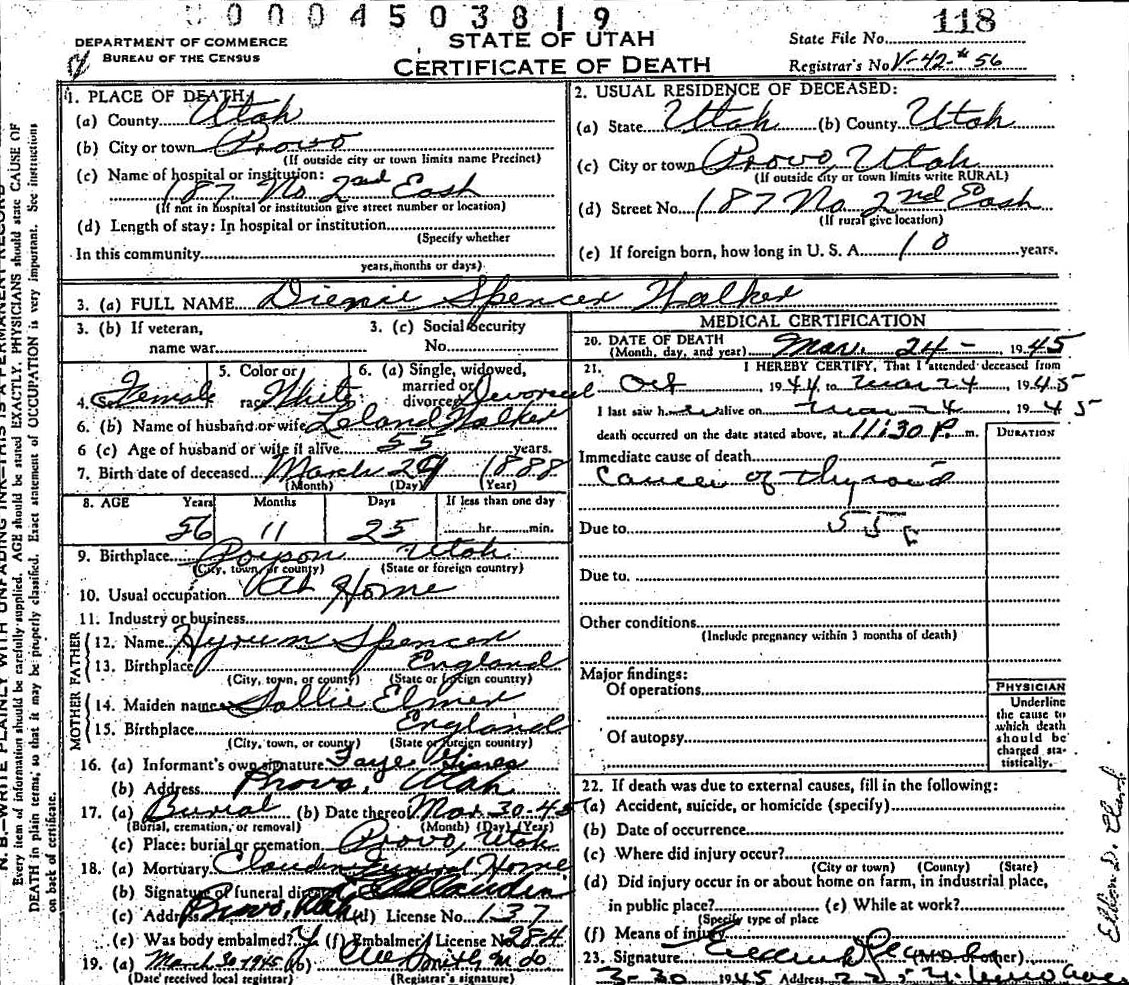 0 0 0 0 4 5 0 3 8 1 9
DEPARTMENT OF COMMERCE
BUREAU OF THE CENSUS
STATE OF UTAH
CERTIFICATE OF DEATH
State File No. 118
Registrar's No V-42-#56
N. B.—WRITE PLAINLY WITH UNFADING INK—THIS IS A PERMANENT RECORD
Every item of information should be carefully supplied. AGE should be stated EXACTLY. PHYSICIANS should state CAUSE OF
DEATH in plain terms, so that it may be properly classified. Exact statement of OCCUPATION is very important. See instructions
on back of certificate.
1. PLACE OF DEATH
(a) County Utah
(b) City or town Provo
(If outside city or town limits name Precinct)
(c) Name of hospital or institution:
187 No 2nd East
(If not in hospital or institution give street number or location)
(d) Length of stay: In hospital or institution
(Specify whether
In this community
years, months or days)
2. USUAL RESIDENCE OF DECEASED:
(a) State Utah (b) County Utah
(c) City or town Provo, Utah
(If outside city or town limits write RURAL)
(d) Street No. 187 No 2nd East
(If rural give location)
(e) If foreign born, how long in U. S. A 10 years.
3. (a) FULL NAME Spencer Walker
3. (b) If veteran,
name war
3. (c) Social Security
No.
4. Sex Female
5. Color or
race White
6. (a) Single, widowed,
married or
divorced Devorced
6. (b) Name of husband or wife Leland Walker
6 (c) Age of husband or wife if alive 55 years.
7. Birth date of deceased March 29 1888
(Month) (Day) (Year)
8. AGE Years Months Days If less than one day
56 11 25 hr. min.
9. Birthplace Utah
(City, town, or county) (State or foreign country)
10. Usual occupation At Home
11. Industry or business
FATHER
12. Name Hyrum Spencer
13. Birthplace England
(City, town, or county) (State or foreign country)
MOTHER
14. Maiden name Sallie Elmer
15. Birthplace England
(City, town, or county) (State or foreign country)
16. (a) Informant's own signature Faye
(b) Address Provo, Utah
17. (a) Burial (b) Date thereof Mar. 30-45
(Burial, cremation, or removal) (Month) (Day) (Year)
(c) Place: burial or cremation Provo, Utah
18. (a) Mortuary Claudin Funeral Home
(b) Signature of funeral director Claudin
(c) Address Provo, Utah (d) License No. 137
(e) Was body embalmed? Y (f) Embalmer's License No 284
19. (a) March 30 1945 (b) Smith, M. D.
(Date received local registrar) (Registrar's signature)
MEDICAL CERTIFICATION
20. DATE OF DEATH
(Month, day, and year) Mar. 24 - , 1945
21. I HEREBY CERTIFY, That I attended deceased from
Oct , 1944 to Mar 24 , 1945
I last saw her alive on Mar 24 , 1945
death occurred on the date stated above, at 11:30 P. m.
DURATION
Immediate cause of death
Cancer of thyroid
Due to 55
Due to.
Other conditions
(Include pregnancy within 3 months of death)
Major findings:
Of operations
Of autopsy
PHYSICIAN
Underline
the cause to
which death
should be
charged sta-
tistically.
22. If death was due to external causes, fill in the following:
(a) Accident, suicide, or homicide (specify)
(b) Date of occurrence
(c) Where did injury occur?
(City or town) (County) (State)
(d) Did injury occur in or about home on farm, in industrial place,
in public place? (e) While at work?
(Specify type of place
(f) Means of injury
23. Signature (M.D. or other)
3-30 1945 Address